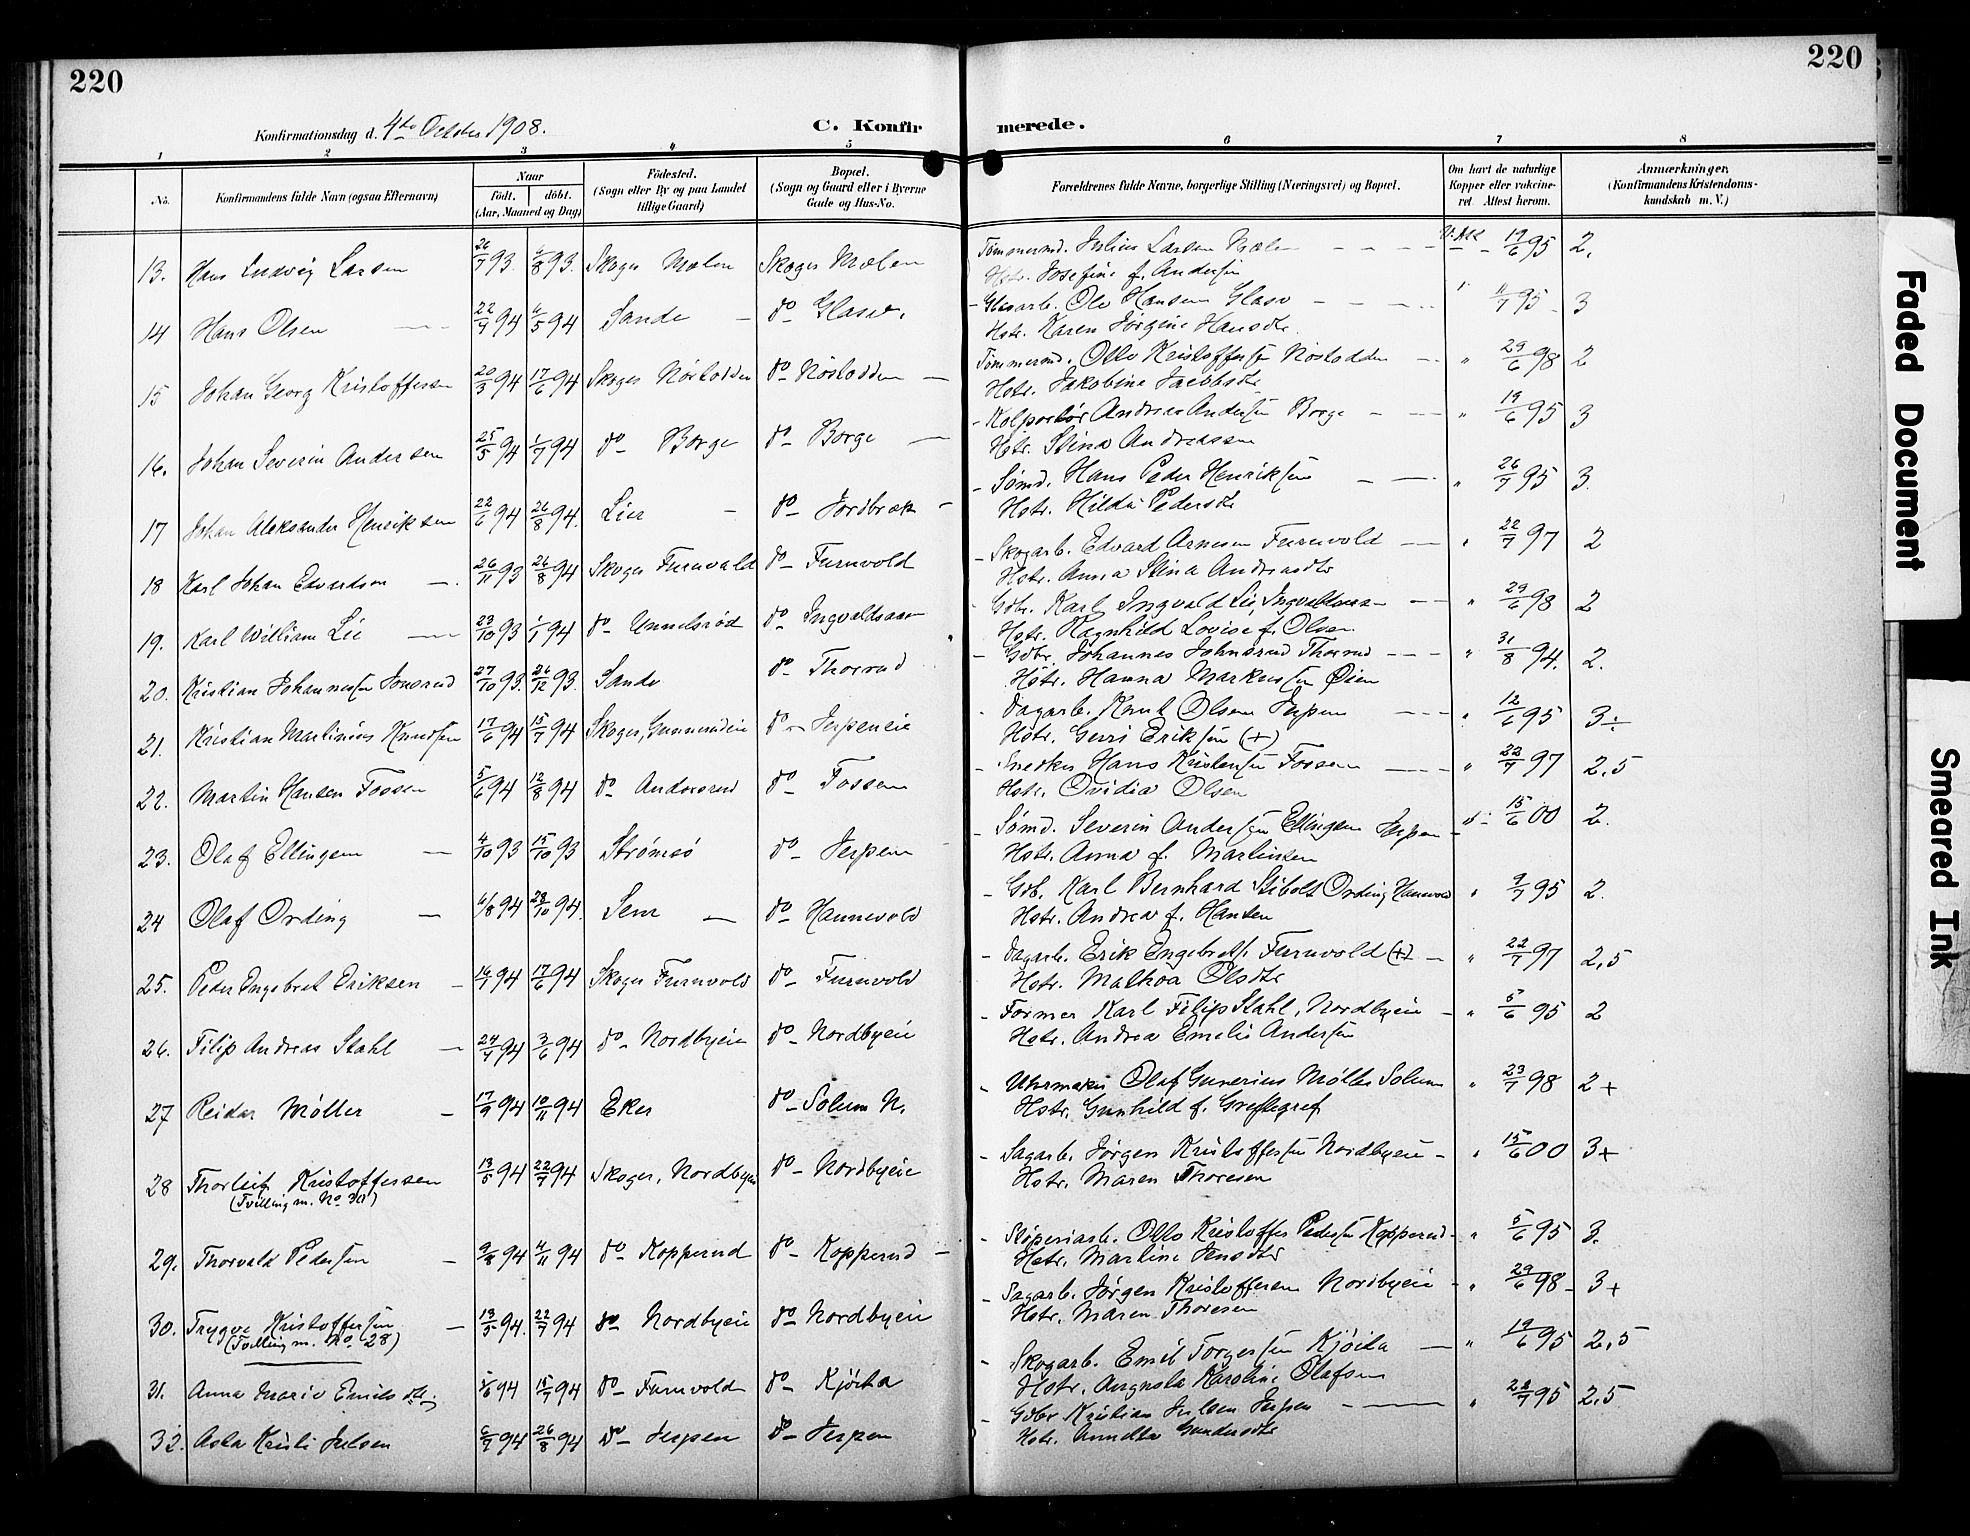 220
220
Konfirmationsdag d. 4de October 1908.
C. Konfir
merede.
1 2 3 4 5 6 7 8
No.
Konfirmandens fulde Navn (ogsaa Efternavn)
Naar
født. døbt.
(Aar, Maaned og Dag)
Fødested.
(Sogn eller By og paa Landet
tillige Gaard)
Bopæl.
(Sogn og Gaard eller i Byerne
Gade og Hus-No.
Forældrenes fulde Navne, borgerlige Stilling (Næringsvei) og Bopæl.
Om havt de naturlige
Kopper eller vakcine-
ret Attest herom.
Anmærkninger.
(Konfirmandens Kristendoms-
kundskab m. V.)
13. Hans Ludvig Larsen 26/7 93. 6/8 93. Skoger Mælen Skoger Mælen Tømmermd. Julius Larsen Mælen 19/6 95 2.
Hstr. Josefine f. Andersen
14 Hans Olsen 22/4 94 6/5 94 Sande do Glasv. Glasarb. Ole Hansen Glasv 11/7 95 3
Hstr. Karen Jørgine Hansdtr.
15 Johan Georg Kristoffersen 20/3 94 17/6 94 Skoger Nøstodden do Nøstodden Tømmermd. Otto Kristoffersen Nøstodden 29/6 98 2
Hstr. Jakobine Jacobsdtr
16. Johan Severin Andersen 25/5 94 1/7 94 do Borge do Borge Kolportør Andreas Andersen Borge 19/6 95 3
Hstr. Stina Andreassen
17 Johan Aleksander Henriksen 22/6 94 26/8 94. Lier do Jordbræk Sømd. Hans Peder Henriksen 26/7 95 3.
Hstr. Hilda Pedersdtr
18 Karl Johan Edvardsen 26/11 93 26/8 94 Skoger Furuvold do Furuvold Skogarb. Edvard Arnesen Furuvold 22/7 97 2
Hstr. Anna Stina Andreasdtr
19. Karl William Lie 23/10 93 1/1 94 do Unnelsrød do Ingvaldsaas Gdbr. Karl Ingvald Lie, Ingvaldsaas 29/6 98 2
Hstr. Ragnhild Lovise f. Olsen
20. Kristian Johannessen Jonsrud 27/10 93. 26/12 93. Sande do Thorrud Gdbr. Johannes Johnsrud Thorrud 31/8 94. 2.
Hstr. Hanna Markussen Øien
21. Kristian Martinius Knudsen 17/6 94 15/7 94 Skoger, Gunnerudeie do Jerpeneie Dagarb. Knut Olsen Jerpen 12/6 95 3÷
Hstr. Gurri Eriksen (+)
22. Martin Hansen Fossen 5/6 94 12/8 94 do Andorsrud do Fossen Snedker Hans Kristensen Fossen 22/7 97 2,5
Hstr. Ovidia Olsen
23. Olaf Ellingsen 4/10 93 15/10 93 Strømsø do Jerpen Sømd. Severin Andersen Ellingsen Jerpen 15/6 00 2.
Hstr. Anna f. Martinsen
24 Olaf Ording 6/8 94 28/10 94. Sem do Hannevold Gdb. Karl Bernhard Stibolt Ording Hannevold 9/7 95 2.
Hstr. Andrea f. Hansen
25. Peder Engebret Eriksen 94 17/6 94 Skoger Furuvold do Furuvold Dagarb. Erik Engebrets. Furuvold (+) 22/7 97 2,5
Hstr. Mathea Olsdtr
26. Filip Andreas Stahl 24/4 94 3/6 94 do Nordbyeie do Nordbyeie Former Karl Filip Stahl, Nordbyeie 5/6 95 2
Hstr. Andrea Emelie Andersen
27 Reidar Møller 17/9 94 10/11 94 Eker do Solum N. Uhrmaker Olaf Gunerius Møller Solum 23/7 98 2+
Hstr. Gunhild f. Greftegref
28 Thorleif Kristoffersen 13/5 94 22/7 94 Skoger, Nordbyeie do Nordbyeie Sagarb. Jørgen Kristoffersen Nordbyeie 15/6 00 3+
(Tvilling m. No 30) Hstr. Maren Thoresen
29. Thorvald Pedersen 9/8 94 4/11 94 do Kopperud do Kopperud Støperiarb. Otto Kristoffer Pedersen Kopperud 5/6 95 3.
Hstr. Martine Jensdtr
30. Trygve Kristoffersen 13/5 94. 22/7 94 do Nordbyeie do Nordbyeie Sagarb. Jørgen Kristoffersen Nordbyeie 29/6 98 3+
(Tvilling m. No. 28) Hstr. Maren Thoresen
31. Anna Marie Emilsdtr 94 15/7 94 do Furuvold do Kjøsta Skogarb. Emil Torgersen Kjøsta 19/6 95 2,5
Hstr. Augusta Karoline Olafsen
32. Asla Kristi Julsen 6/7 94 26/8 94 do Jerpen do Jerpen Gdbr Kristian Julsen Jerpen 95 2,5
Hstr. Anne Gundersdtr
Faded Document
Smeared Ink